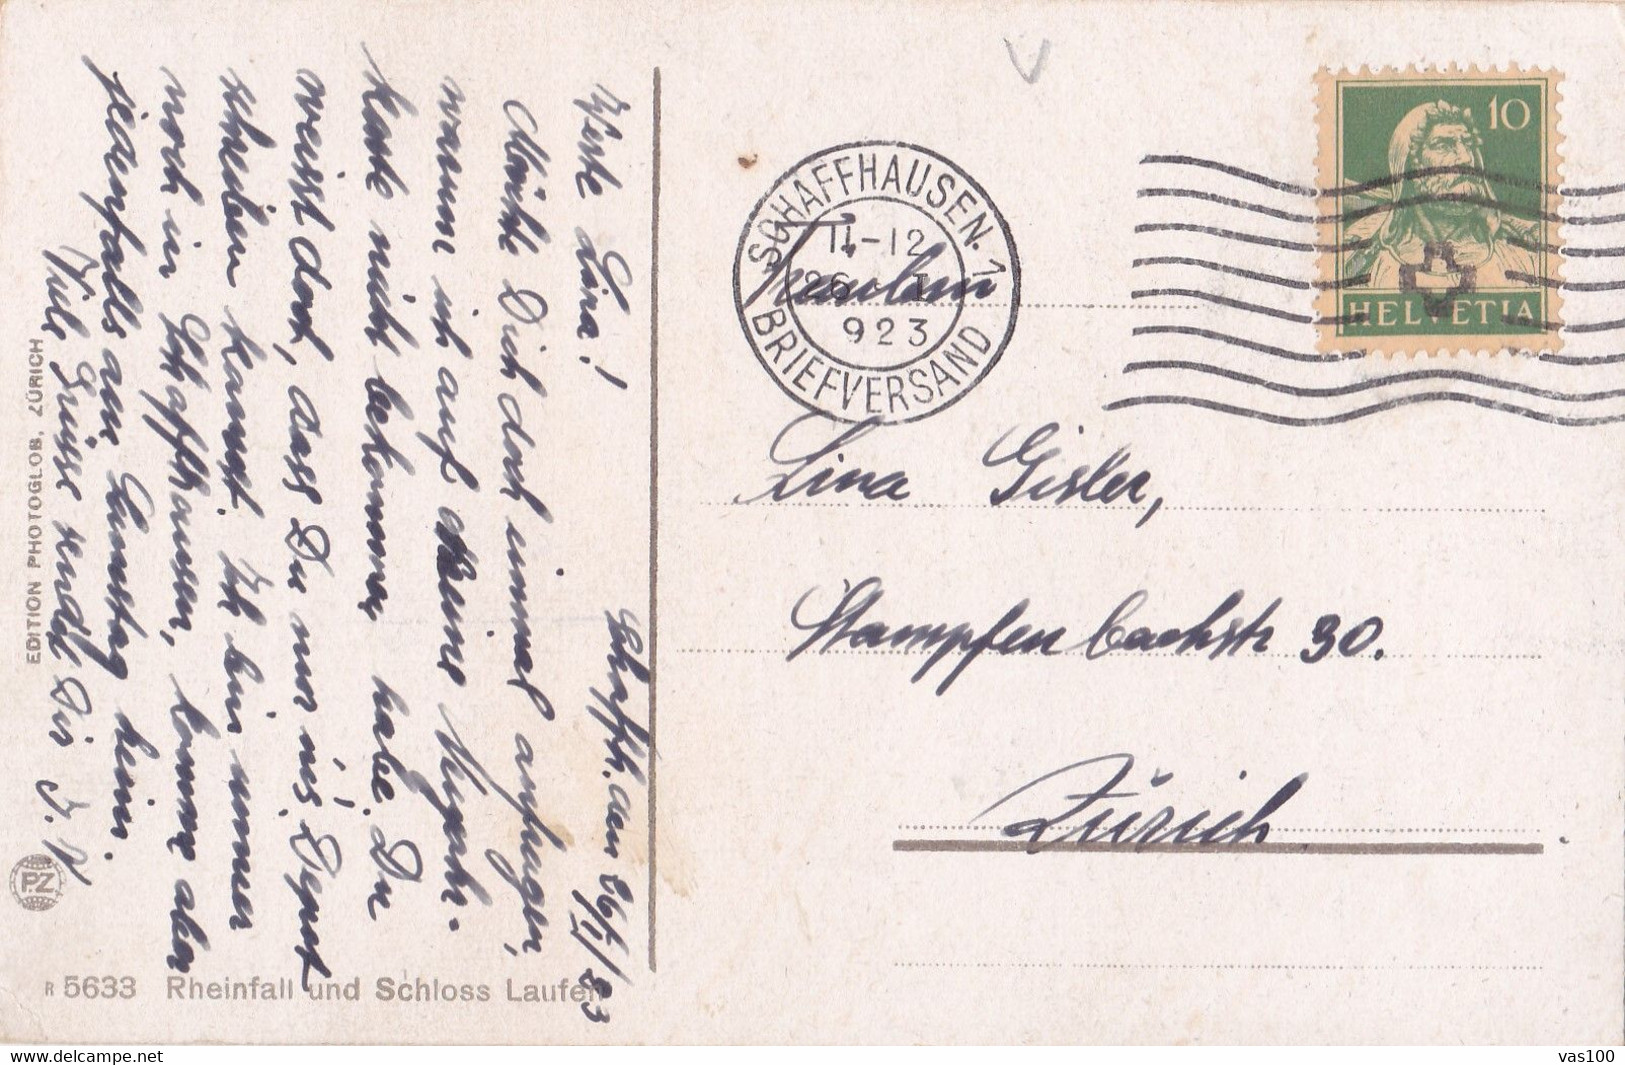 Schaffh. den 26/I/23
Werte Lina!
Möchte Dich doch einmal anfragen,
warum ich auf meine Neujahr-
karte nicht bekommen habe. Du
weisst doch, dass Du nur ins Depot
schreiben kannst. Ich bin immer
noch in Schaffhausen, komme aber
jedenfalls am Samstag heim.
Viele Grüsse sendet Dir J. W.
EDITION PHOTOGLOB, ZÜRICH
PZ
R 5633 Rheinfall und Schloss Laufen
SCHAFFHAUSEN.1
11-12
26. I
923
BRIEFVERSAND
10
HELVETIA
Fräulein
Lina Gisler,
Stampfenbachstr 30.
Zürich
delcampe.net
vas100